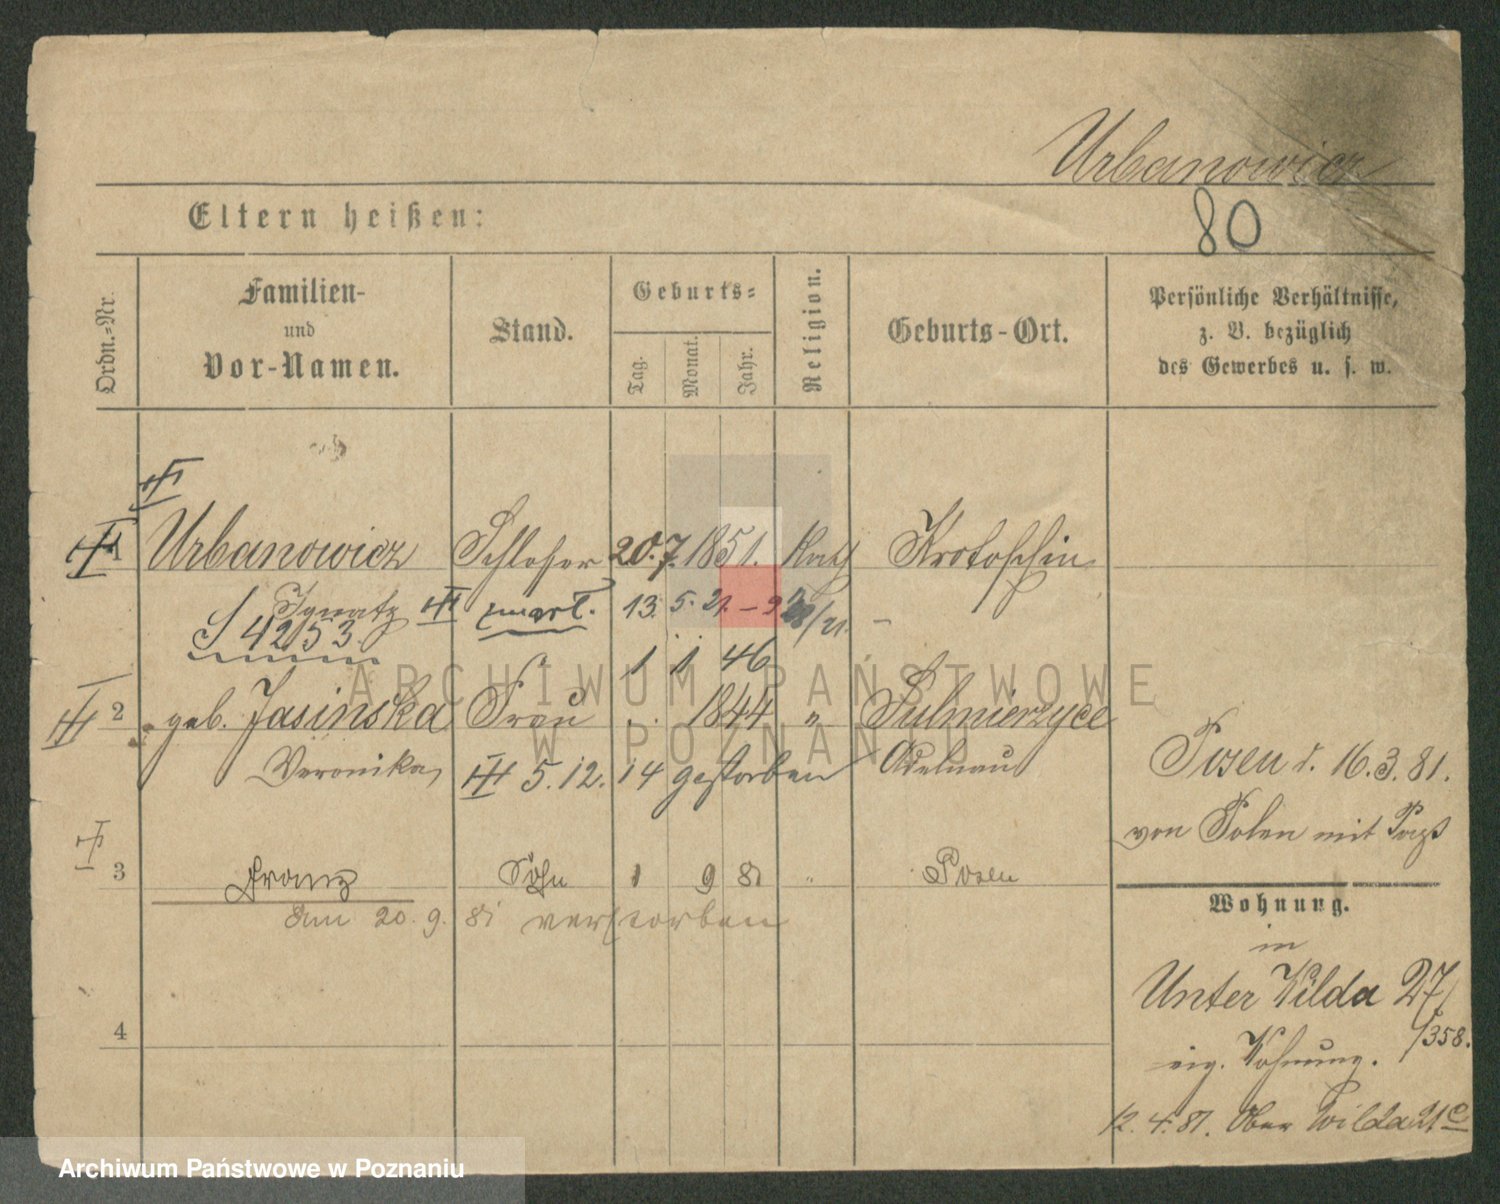 Urbanowicz
80
Eltern heißen:
Ordn.-Nr.
Familien-
und
Vor-Namen.
Stand.
Geburts-
Tag.
Monat.
Jahr.
Religion.
Geburts-Ort.
Persönliche Verhältnisse,
z. B. bezüglich
des Gewerbes u. s. w.
1 Urbanowicz Schlosser 20. 7. 1851. Kath Krotoschin
Ignatz 13. 5. 21.
S 4253
1 1 46
2 geb. Jasinska Frau 1844 " Sulmierzyce
Veronika 5. 12. 14 gestorben Adelnau
Posen d. 16.3.81.
von Polen mit
3 Franz Sohn 1 9 81 " Posen
am 20. 9. 81 verstorben
Wohnung.
in
Unter Wilda 27
/358.
eig. Wohnung.
4
12. 4. 81. Ober Wilda 21
ARCHIWUM PAŃSTWOWE
W POZNANIU
Archiwum Państwowe w Poznaniu